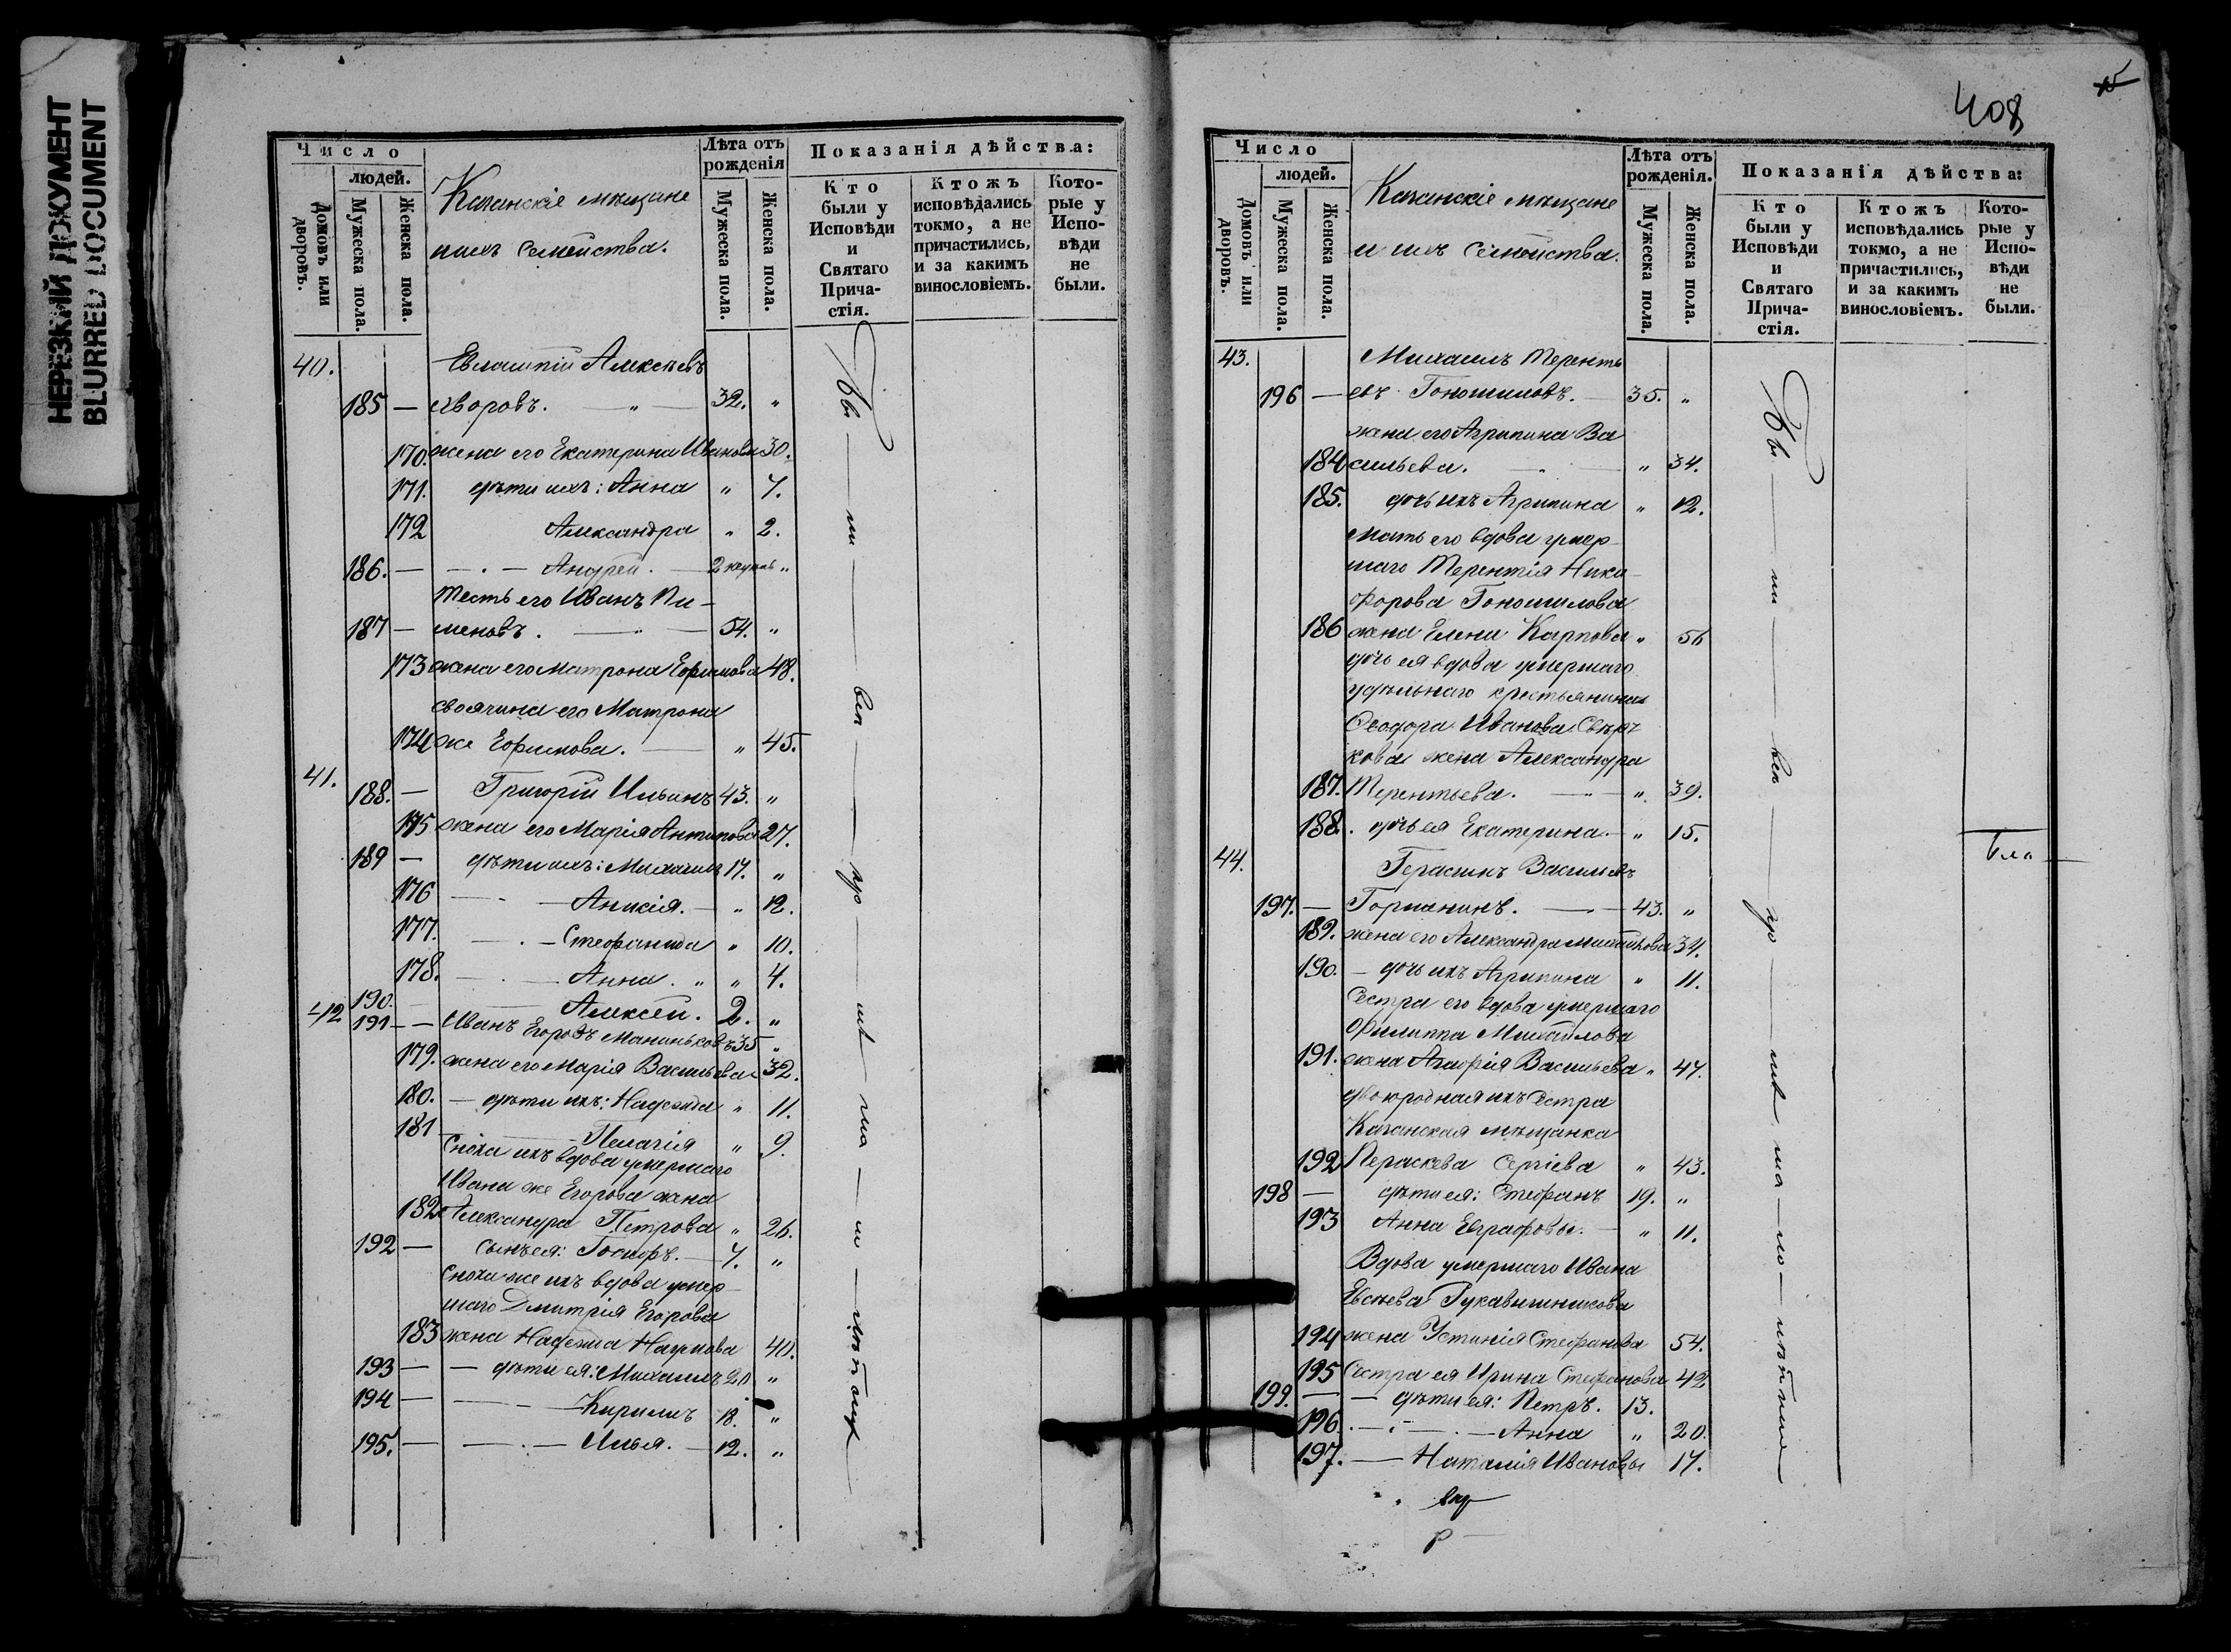 НЕРЕЗКИЙ ДОКУМЕНТ
BLURRED DOCUMENT
Число
людей.
Домовъ или дворовъ.
Мужеска пола.
Женска пола.
Казанскіе мѣщане
и ихъ семейства.
Лѣта отъ рожденія
Мужеска пола.
Женска пола.
Показанія дѣйства:
Кто были у Исповѣди и Святаго Прича-стія.
Ктожъ исповѣдались токмо, а не причастились, и за какимъ винословіемъ.
Кото-рые у Испо-вѣди не были.
40. Евлампій Алексѣевъ
185 — яворовъ. — " — 32. "
170. жена его Екатерина Иванова 30.
171. дѣти ихъ: Анна " 7.
172 Александра " 2.
186. — — . — Андрей. — 2 "
Тесть его Иванъ Пи-
187 — меновъ. — " — 54. "
173 жена его Матрона Ефимова 48.
своячина его Матрона
174 же Ефимова. — " 45.
41.
188. — Григорій Ильинъ 43. "
175 жена его Марія Антипова 27.
189 — дѣти ихъ: Михаилъ 17. "
176 — Анисія. — " 12.
177. — . — Стефанида " 10.
178. — Анна. " " 4.
190. — Алексѣй. 2. "
42 191 — — Иванъ Егоровъ Маниньковъ 35 "
179. жена его Марія Васильева 32.
180. — дѣти ихъ: Надежда " 11.
181 — Пелагія " 9.
Сноха ихъ вдова умершаго
Ивана же Егорова жена
182 Александра Петрова " 26.
192 — сынъ ея: Госифъ. — 7. "
Сноха же ихъ вдова умер-
шаго Дмитрія Егорова
183 жена Надежда Наумова 40.
193 — — дѣти ея: Михаилъ 20 "
194 — — — Кирилъ 18. "
195. — — . — Илья. — 12. "
408
15
Число
людей.
Домовъ или дворовъ.
Мужеска пола.
Женска пола.
Казанскіе мѣщане
и ихъ семейства.
Лѣта отъ рожденія.
Мужеска пола.
Женска пола.
Показанія дѣйства:
Кто были у Исповѣди и Святаго Прича-стія.
Ктожъ исповѣдались токмо, а не причастились, и за какимъ винословіемъ.
Кото-рые у Испо-вѣди не были.
43. Михаилъ Теренть
196 — евъ Гоношиловъ. — 35. "
жена его Агрипина Ва
184 сильева. — " 34.
185. дочь ихъ Агрипина " 12.
Мать его вдова умер-
шаго Терентія Ники-
форова Гоношилова
186 жена Елена Карпова " 56
дочь ея вдова умершаго
удѣльнаго крестьянина
Ѳеодора Иванова
кова жена Александра
187. Терентьева. — " 39.
188. дочь ея Екатерина. — " 15.
44. Герасимъ Васильевъ
197. — Горшанинъ. — 43. "
189. жена его Александра Михайлова 34.
190. — дочь ихъ Агрипина " 11.
Сестра его вдова умершаго
Филиппа Михайлова
191. жена Агафія Васильева " 47.
двоюродная ихъ сестра
Казанская мѣщанка
192 Параскева Сергіева " 43.
198 — дѣти ея: Стефанъ 19. "
193 Анна Евграфовы. — " 11.
Вдова умершаго Ивана
Евсѣева Рукавишникова
194 жена Устинія Стефанова 54.
195 Сестра ея Ирина Стефанова 42
199. — — дѣти ея: Петръ. 13.
196. — . — Анна " 20.
197. — Наталія Ивановы 17.